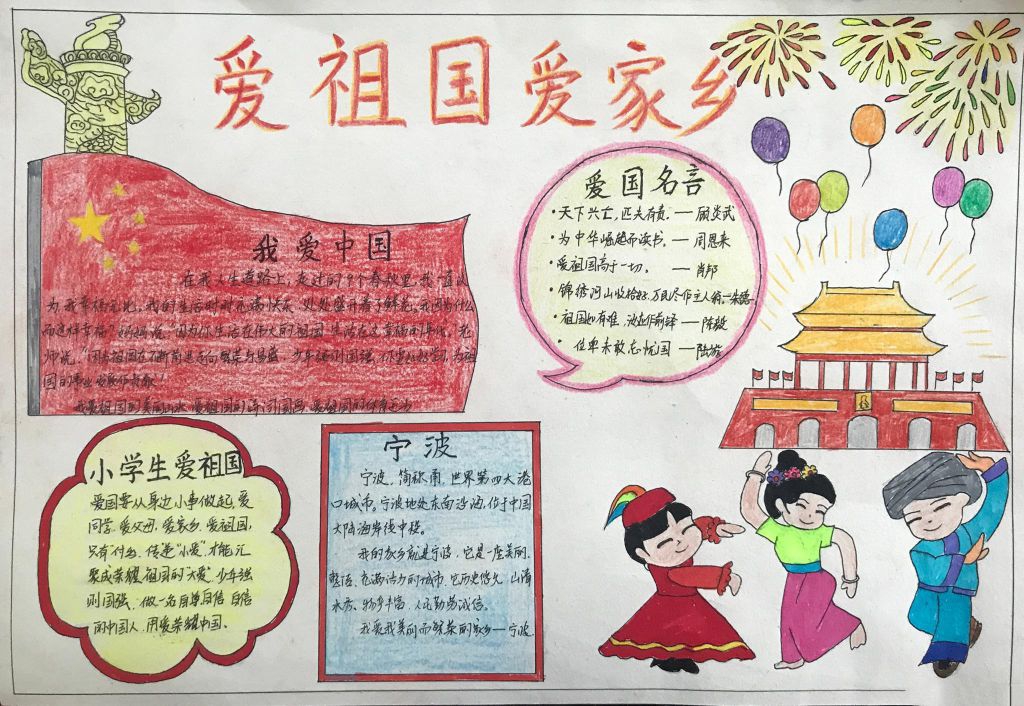 爱祖国爱家乡
我爱中国
在我人生道路上,走过的9个春秋里,我一直认
为我幸福无比,我的生活时时充满了快乐,处处盛开着鲜花,我因为什么
而这样幸福?妈妈说:“因为你生活在伟大的祖国,生活在幸福的年代,老
师说:“因为祖国在不断前进走向繁荣与昌盛,少年强则国强,你要好好学习,为祖
国的事业发展作贡献!
我爱祖国的美丽山水,爱祖国的诗词国画,爱祖国的
爱国名言
•天下兴亡,匹夫有责.—顾炎武
•为中华崛起而读书.—周恩来
•爱祖国高于一切。—肖邦
•锦绣河山收拾好,万民尽作主人翁—朱德
•祖国如有难,汝应作前锋—陈毅
•位卑未敢忘忧国—陆游
小学生爱祖国
爱国要从身边小事做起,爱
同学,爱父母,爱家乡,爱祖国,
只有付出,传递“小爱”,才能汇
聚成荣耀祖国的“大爱”,少年强
则国强,做一名自尊自信自信
的中国人,用爱荣耀中国。
宁波
宁波,简称甬,世界第四大港
口城市。宁波地处东南沿海,位于中国
大陆海岸线中段。
我的家乡就是宁波,它是一座美丽、
整洁、充满活力的城市,它历史悠久,山清
水秀、物产丰富,人民勤劳诚信。
我爱我美丽而繁荣的家乡—宁波.